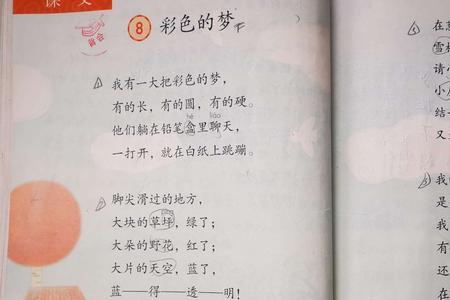 课文
背诵
8 彩色的梦
1 我有一大把彩色的梦，
有的长，有的圆，有的硬。
hé liáo
他们躺在铅笔盒里聊天，
一打开，就在白纸上跳蹦。
2 脚尖滑过的地方，
大块的草坪，绿了；
大朵的野花，红了；
大片的天空，蓝了，
蓝——得——透——明！
在
雪
请
小
结
又
我
是
我
有
还
在